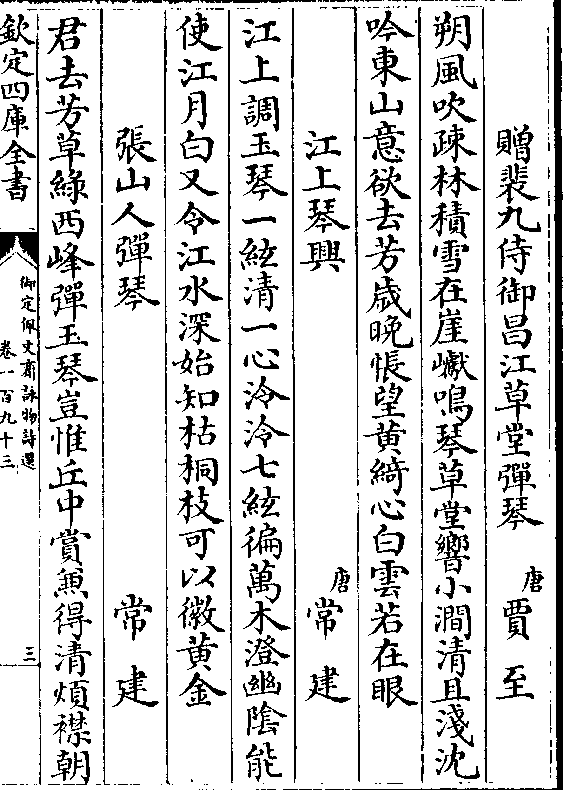 贈裴九侍御昌江草堂彈琴 唐 賈至
朔風吹疎林積雪在崖巘鳴琴草堂響小澗清且淺沈
吟東山意欲去芳歳晚悵望黄綺心白雲若在眼
江上琴興 唐 常建
江上調玉琴一絃清一心泠泠七絃徧萬木澄幽陰能
使江月白又令江水深始知枯桐枝可以徽黄金
張山人彈琴 常建
君去芳草綠西峰彈玉琴豈惟丘中賞兼得清煩襟朝
欽定四庫全書
御定佩文齋詠物詩選
卷一百九十三
三